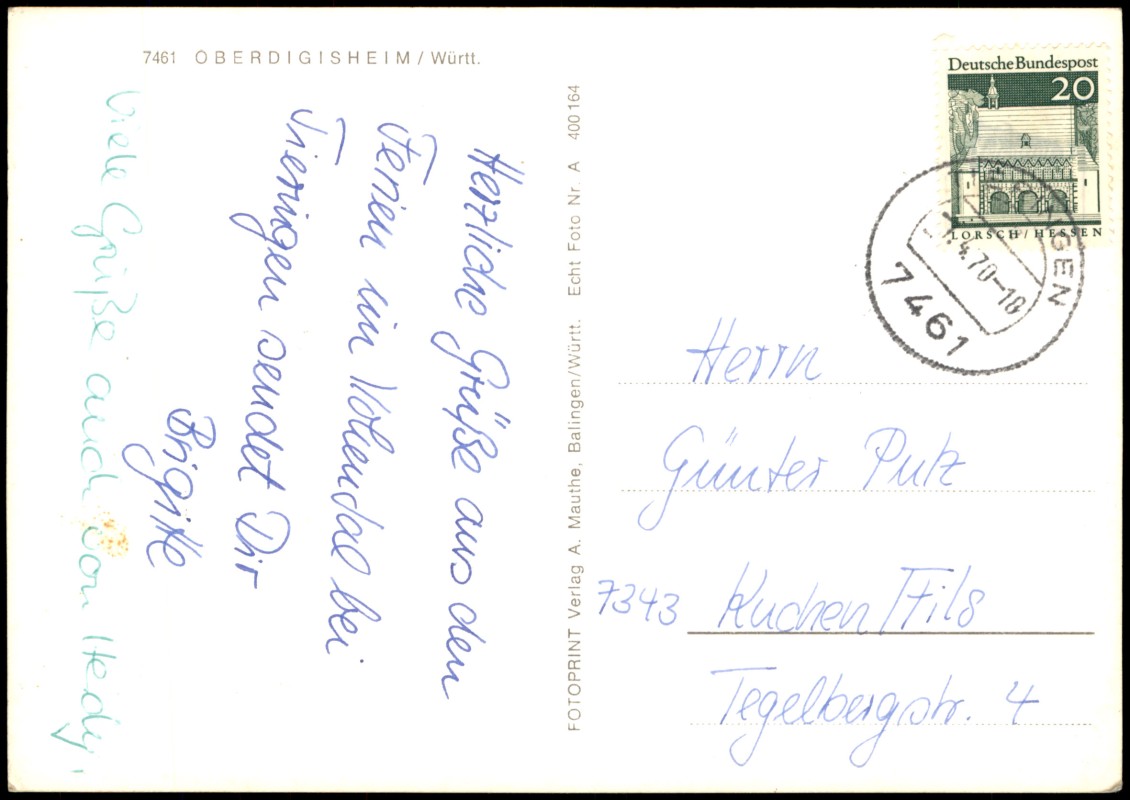 7461 OBERDIGISHEIM / Württ.
Herzliche Grüße aus den
Ferien im Kohendal bei
Tieringen sendet Dir
Brigitte
Viele Grüße auch von Hedy.
FOTOPRINT Verlag A. Mauthe, Balingen/Württ. Echt Foto Nr. A 400 164
Deutsche Bundespost
20
LORSCH / HESSEN
4.70-18
7461
Herrn
Günter Putz
7343 Kuchen/Fils
Tegelbergstr. 4